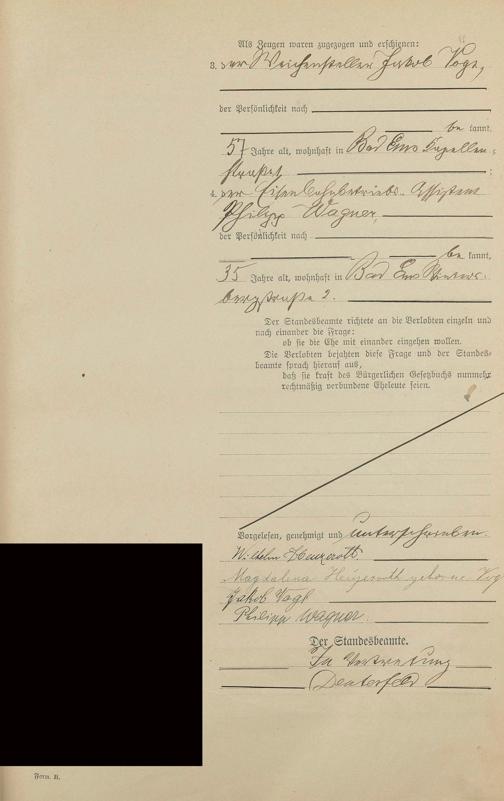 Als Zeugen waren zugezogen und erschienen:
3. der Weichensteller Jakob Vogt,
der Persönlichkeit nach
be kannt,
57 Jahre alt, wohnhaft in Bad Ems Kapellen-
straße ;
4. der Eisenbahnbetriebs-Assistent
Philipp Wagner,
der Persönlichkeit nach
be kannt,
35 Jahre alt, wohnhaft in Bad Ems
bergstraße 2.
Der Standesbeamte richtete an die Verlobten einzeln und
nach einander die Frage:
ob sie die Ehe mit einander eingehen wollen.
Die Verlobten bejahten diese Frage und der Standes-
beamte sprach hierauf aus,
daß sie kraft des Bürgerlichen Gesetzbuchs nunmehr
rechtmäßig verbundene Eheleute seien.
Vorgelesen, genehmigt und unterschrieben.
Wilhelm
Magdalena geborne Vog
Jakob Vogt
Philipp Wagner
Der Standesbeamte.
In Vertretung
Form. B.